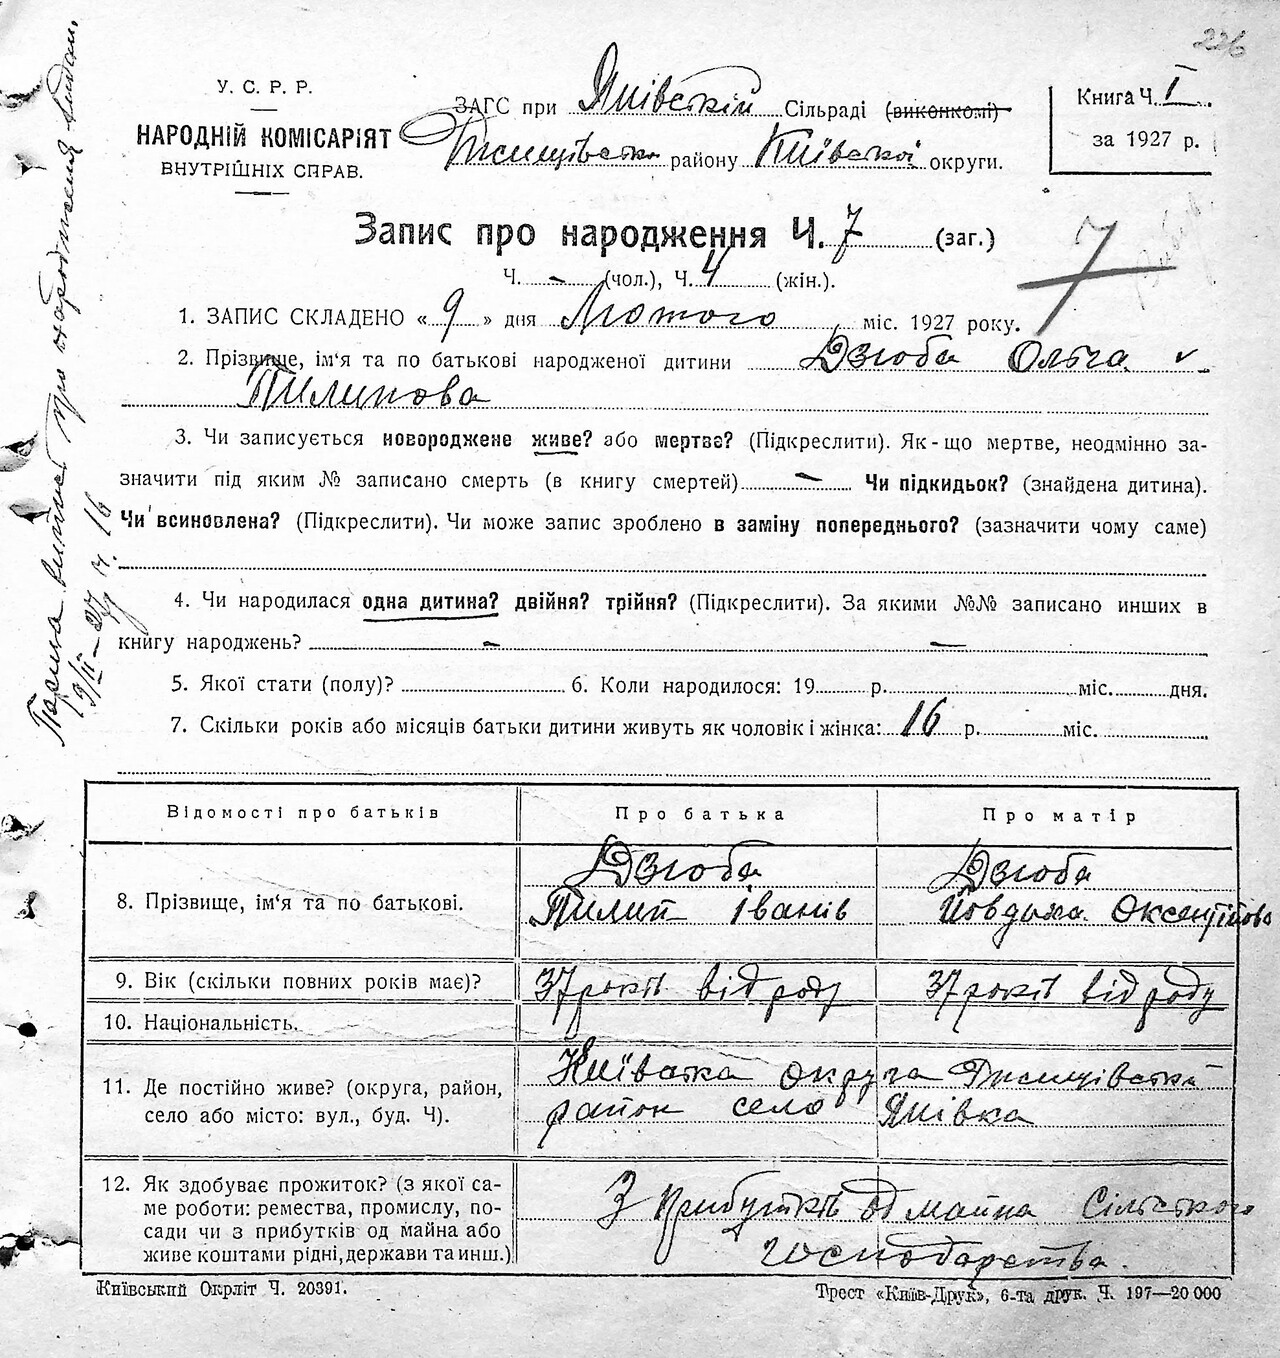 226
У. С. Р. Р.
НАРОДНІЙ КОМІСАРІЯТ
ВНУТРІШНІХ СПРАВ.
ЗАГС при Янівській Сільраді (виконкомі)
району Київської округи.
Книга Ч. I
за 1927 р.
Запис про народження Ч. 7 (заг.)
7
Ч. - (чол.), Ч. 4 (жін.).
1. ЗАПИС СКЛАДЕНО « 9 » дня Лютого міс. 1927 року.
2. Прізвище, ім'я та по батькові народженої дитини Дзюба Ольга
Пилипова
3. Чи записується новороджене живе? або мертве? (Підкреслити). Як-що мертве, неодмінно за-
значити під яким № записано смерть (в книгу смертей) — Чи підкидьок? (знайдена дитина).
Чи всиновлена? (Підкреслити). Чи може запис зроблено в заміну попереднього? (зазначити чому саме)
4. Чи народилася одна дитина? двійня? трійня? (Підкреслити). За якими №№ записано инших в
книгу народжень? - —
5. Якої стати (полу)? 6. Коли народилося: 19 р. міс. дня.
7. Скільки років або місяців батьки дитини живуть як чоловік і жінка: 16 р. міс.
Відомості про батьків Про батька Про матір
8. Прізвище, ім'я та по батькові.
Дзюба
Пилип Іванів
Дзюба
Йовдоха Оксентійова
9. Вік (скільки повних років має)? 37 років від роду 37 років від роду
10. Національність.
11. Де постійно живе? (округа, район,
село або місто: вул., буд. Ч).
Київська округа
район село Янівка
12. Як здобуває прожиток? (з якої са-
ме роботи: ремества, промислу, по-
сади чи з прибутків од майна або
живе коштами рідні, держави та инш.)
З прибутків од майна Сільського
господарства.
Київський Окрліт Ч. 20391.
Трест «Київ-Друк», 6-та друк. Ч. 197—20 000
про народження видан.
9/II—27 р. 16